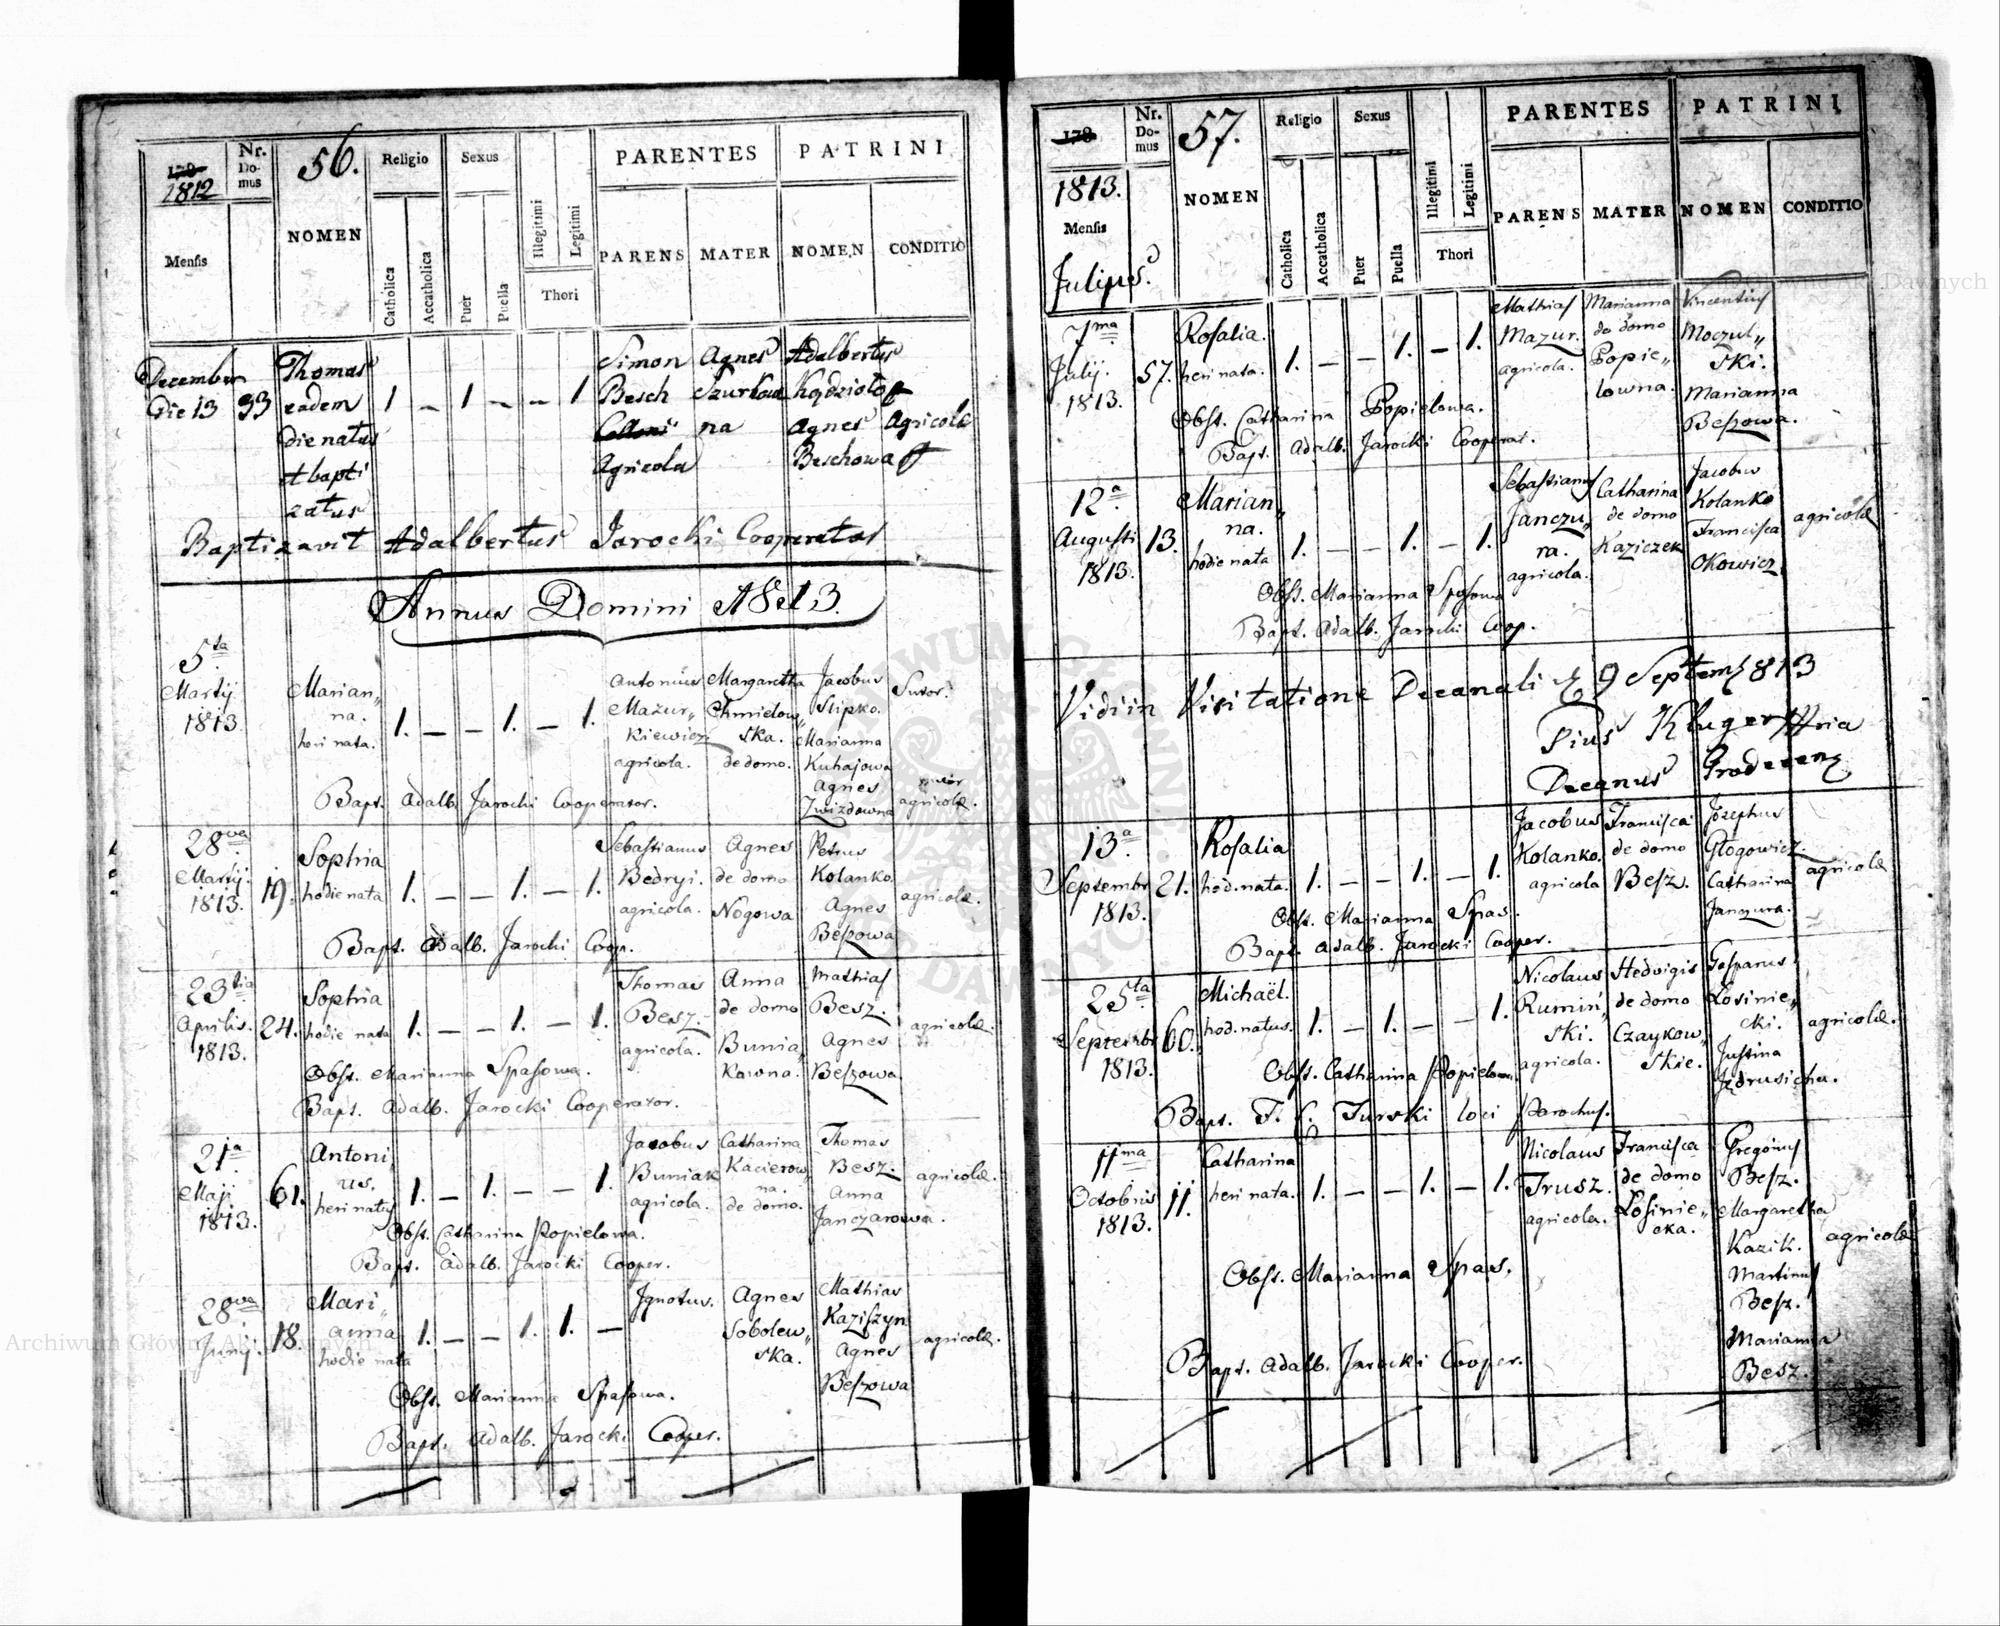 178
1812
Nr. Domus
56.
NOMEN
Religio
Sexus
PARENTES
PATRINI
Mensis
Catholica
Accatholica
Puer
Puella
Illegitimi
Legitimi
Thori
PARENS
MATER
NOMEN
CONDITIO
December Thomas Simon Agnes Adalbertus
die 13 93 eadem 1 – 1 – – 1 Besch Szurkow Kądzioło
die natus na Agnes Agricolæ
Agricola Beschowa
et bapti
zatus
Baptizavit Adalbertus Jarocki Cooperator
Annus Domini 1813.
5ta Antonius Margaretha Jacobus Sutor.
Martij Marian„ Mazur„ Chmielow„ Slipko.
1813. na. 1. – – 1. – 1. kiewicz ska. Marianna
heri nata. agricola. de domo. Kuhajowa
Agnes
Baps. Adalb. Jarocki Cooperator. Zwizdowna agricolæ.
28va Sophia Sebastianus Agnes Petrus
Martij 19. hodie nata 1. – – 1. – 1. Bedryi. de domo Kolanko.
1813. agricola. Nogowa Agnes agricolæ.
Baps. Adalb. Jarocki Coop. Beszowa
23tia Sophia Thomas Anna Mathias
Aprilis. 24. hodie nata 1. – – 1. – 1. Besz. de domo Besz. agricolæ.
1813. agricola. Bunia„ Agnes
Obst. Marianna Spasowa. kowna. Beszowa
Baps. Adalb. Jarocki Cooperator.
21a Antoni„ Jacobus Catharina Thomas
Maji 61. us. 1. – 1. – – 1. Buniak Kacierow„ Besz. agricolæ.
1813. heri natus agricola. na. Anna
de domo. Janczarowa.
Obst. Catharina Popielowa.
Baps. Adalb. Jarocki Cooper.
28va Mari„ Ignotus. Agnes Mathias
Junij. 18. anna 1. – – 1. 1. – Sobolew„ Kaziszyn
hodie nata ska. Agnes agricolæ.
Obst. Marianna Spasowa. Beszowa
Baps. Adalb. Jarocki Cooper.
178
1813.
Nr. Domus
57.
NOMEN
Religio
Sexus
PARENTES
PATRINI
Mensis
Julius
Catholica
Accatholica
Puer
Puella
Illegitimi
Legitimi
Thori
PARENS
MATER
NOMEN
CONDITIO
7ma Rosalia. Mathias Marianna Vincentius
Julij. 57. heri nata. 1. – – 1. – 1. Mazur. de domo Moczul„
1813. agricola. Popie„ ski.
lowna. Marianna
Obst. Catharina Popielowa. Beszowa.
Baps. Adalb. Jarocki Cooperat.
12a Marian„ Sebastianus Catharina Jacobus
Augusti 13. na. 1. – – 1. – 1. Janczu„ de domo Kolanko agricolæ
1813. hodie nata na. Kaziczek Francisca
agricola. Okowicz
Obst. Marianna Spasowa
Baps. Adalb. Jarocki Coop.
Vidi in Visitatione Decanali 9 Septem 813
Pius Kluger
Decanus
13a Rosalia Jacobus Francisca Josephus
Septembr 21. hod. nata. 1. – – 1. – 1. Kolanko. de domo Głogowicz. agricolæ
1813. agricola Besz. Catharina
Obst. Marianna Spas. Janczura.
Baps. Adalb. Jarocki Cooper.
25ta Michaël. Nicolaus Hedvigis Gasparus
Septembr 60. hod. natus. 1. – 1. – – 1. Rumiń„ de domo Łosinie„ agricolæ.
1813. ski. Czaykow„ cki.
agricola. skie. Justina
Obst. Catharina Popielowa. Jędrusicha.
Baps. Turski loci Parochus.
11ma Catharina Nicolaus Francisca Gregorius
Octobris 11. heri nata. 1. – – 1. – 1. Trusz. de domo Besz.
1813. agricola. Łosinie„ Margaretha
cka. Kazik. agricolæ
Obst. Marianna Spas. Martinus
Besz.
Baps. Adalb. Jarocki Cooper. Marianna
Besz.
Archiwum Główne Akt Dawnych